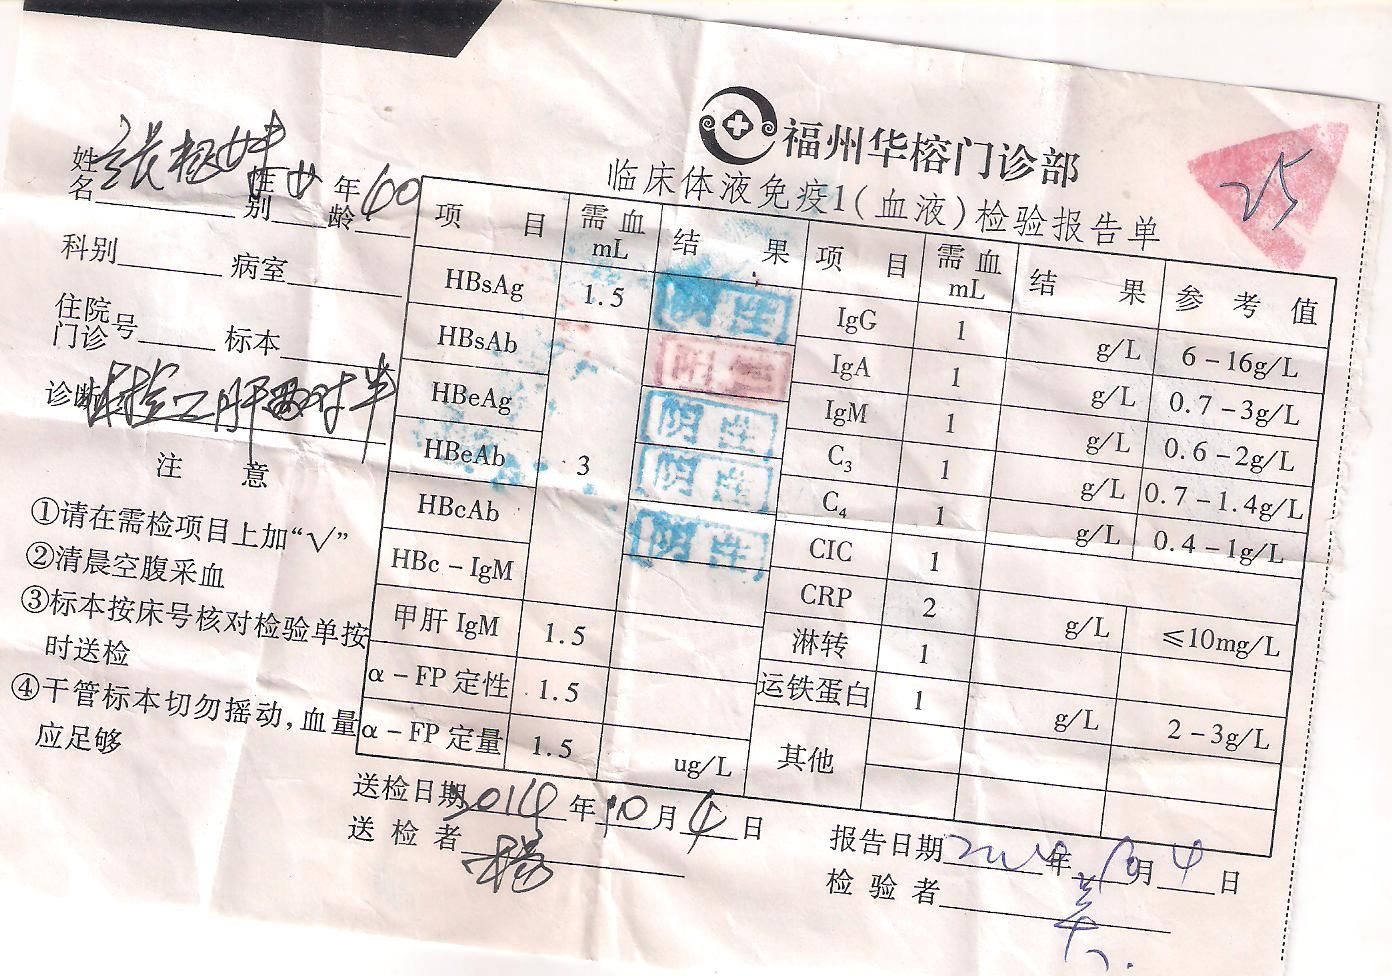 福州华榕门诊部
临床体液免疫1(血液)检验报告单
25
姓名 张极妹 性别 女 年龄 60
科别 病室
住院门诊号 标本
诊断 体检乙肝两对半
注 意
①请在需检项目上加“√”
②清晨空腹采血
③标本按床号核对检验单按
时送检
④干管标本切勿摇动,血量
应足够
项 目 需血mL 结 果 项 目 需血mL 结 果 参 考 值
HBsAg 1.5 阴性 IgG 1 g/L 6-16g/L
HBsAb 阳性 IgA 1 g/L 0.7-3g/L
HBeAg 阴性 IgM 1 g/L 0.6-2g/L
HBeAb 3 阴性 C₃ 1 g/L 0.7-1.4g/L
HBcAb 阴性 C₄ 1 g/L 0.4-1g/L
HBc-IgM CIC 1
甲肝 IgM 1.5 CRP 2 g/L ≤10mg/L
α-FP 定性 1.5 淋转 1
α-FP 定量 1.5 ug/L 运铁蛋白 1 g/L 2-3g/L
其他
送检日期 2014 年 10 月 4 日
送 检 者 杨
报告日期 2014 年 10 月 4 日
检 验 者